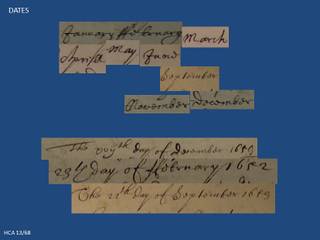 DATES
January ffebruary March
Aprill May June
September
November December
The xxxth day of December 1653
23th day of ffebruary 1652
The 22th day of September 1653
HCA 13/68